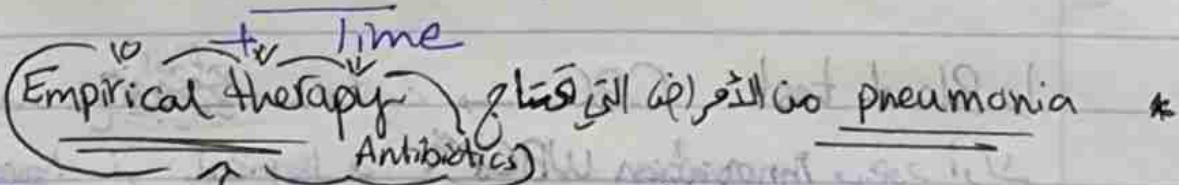 + Time
* pneumonia من الأمراض التي تحتاج Empirical therapy
(Antibiotics)